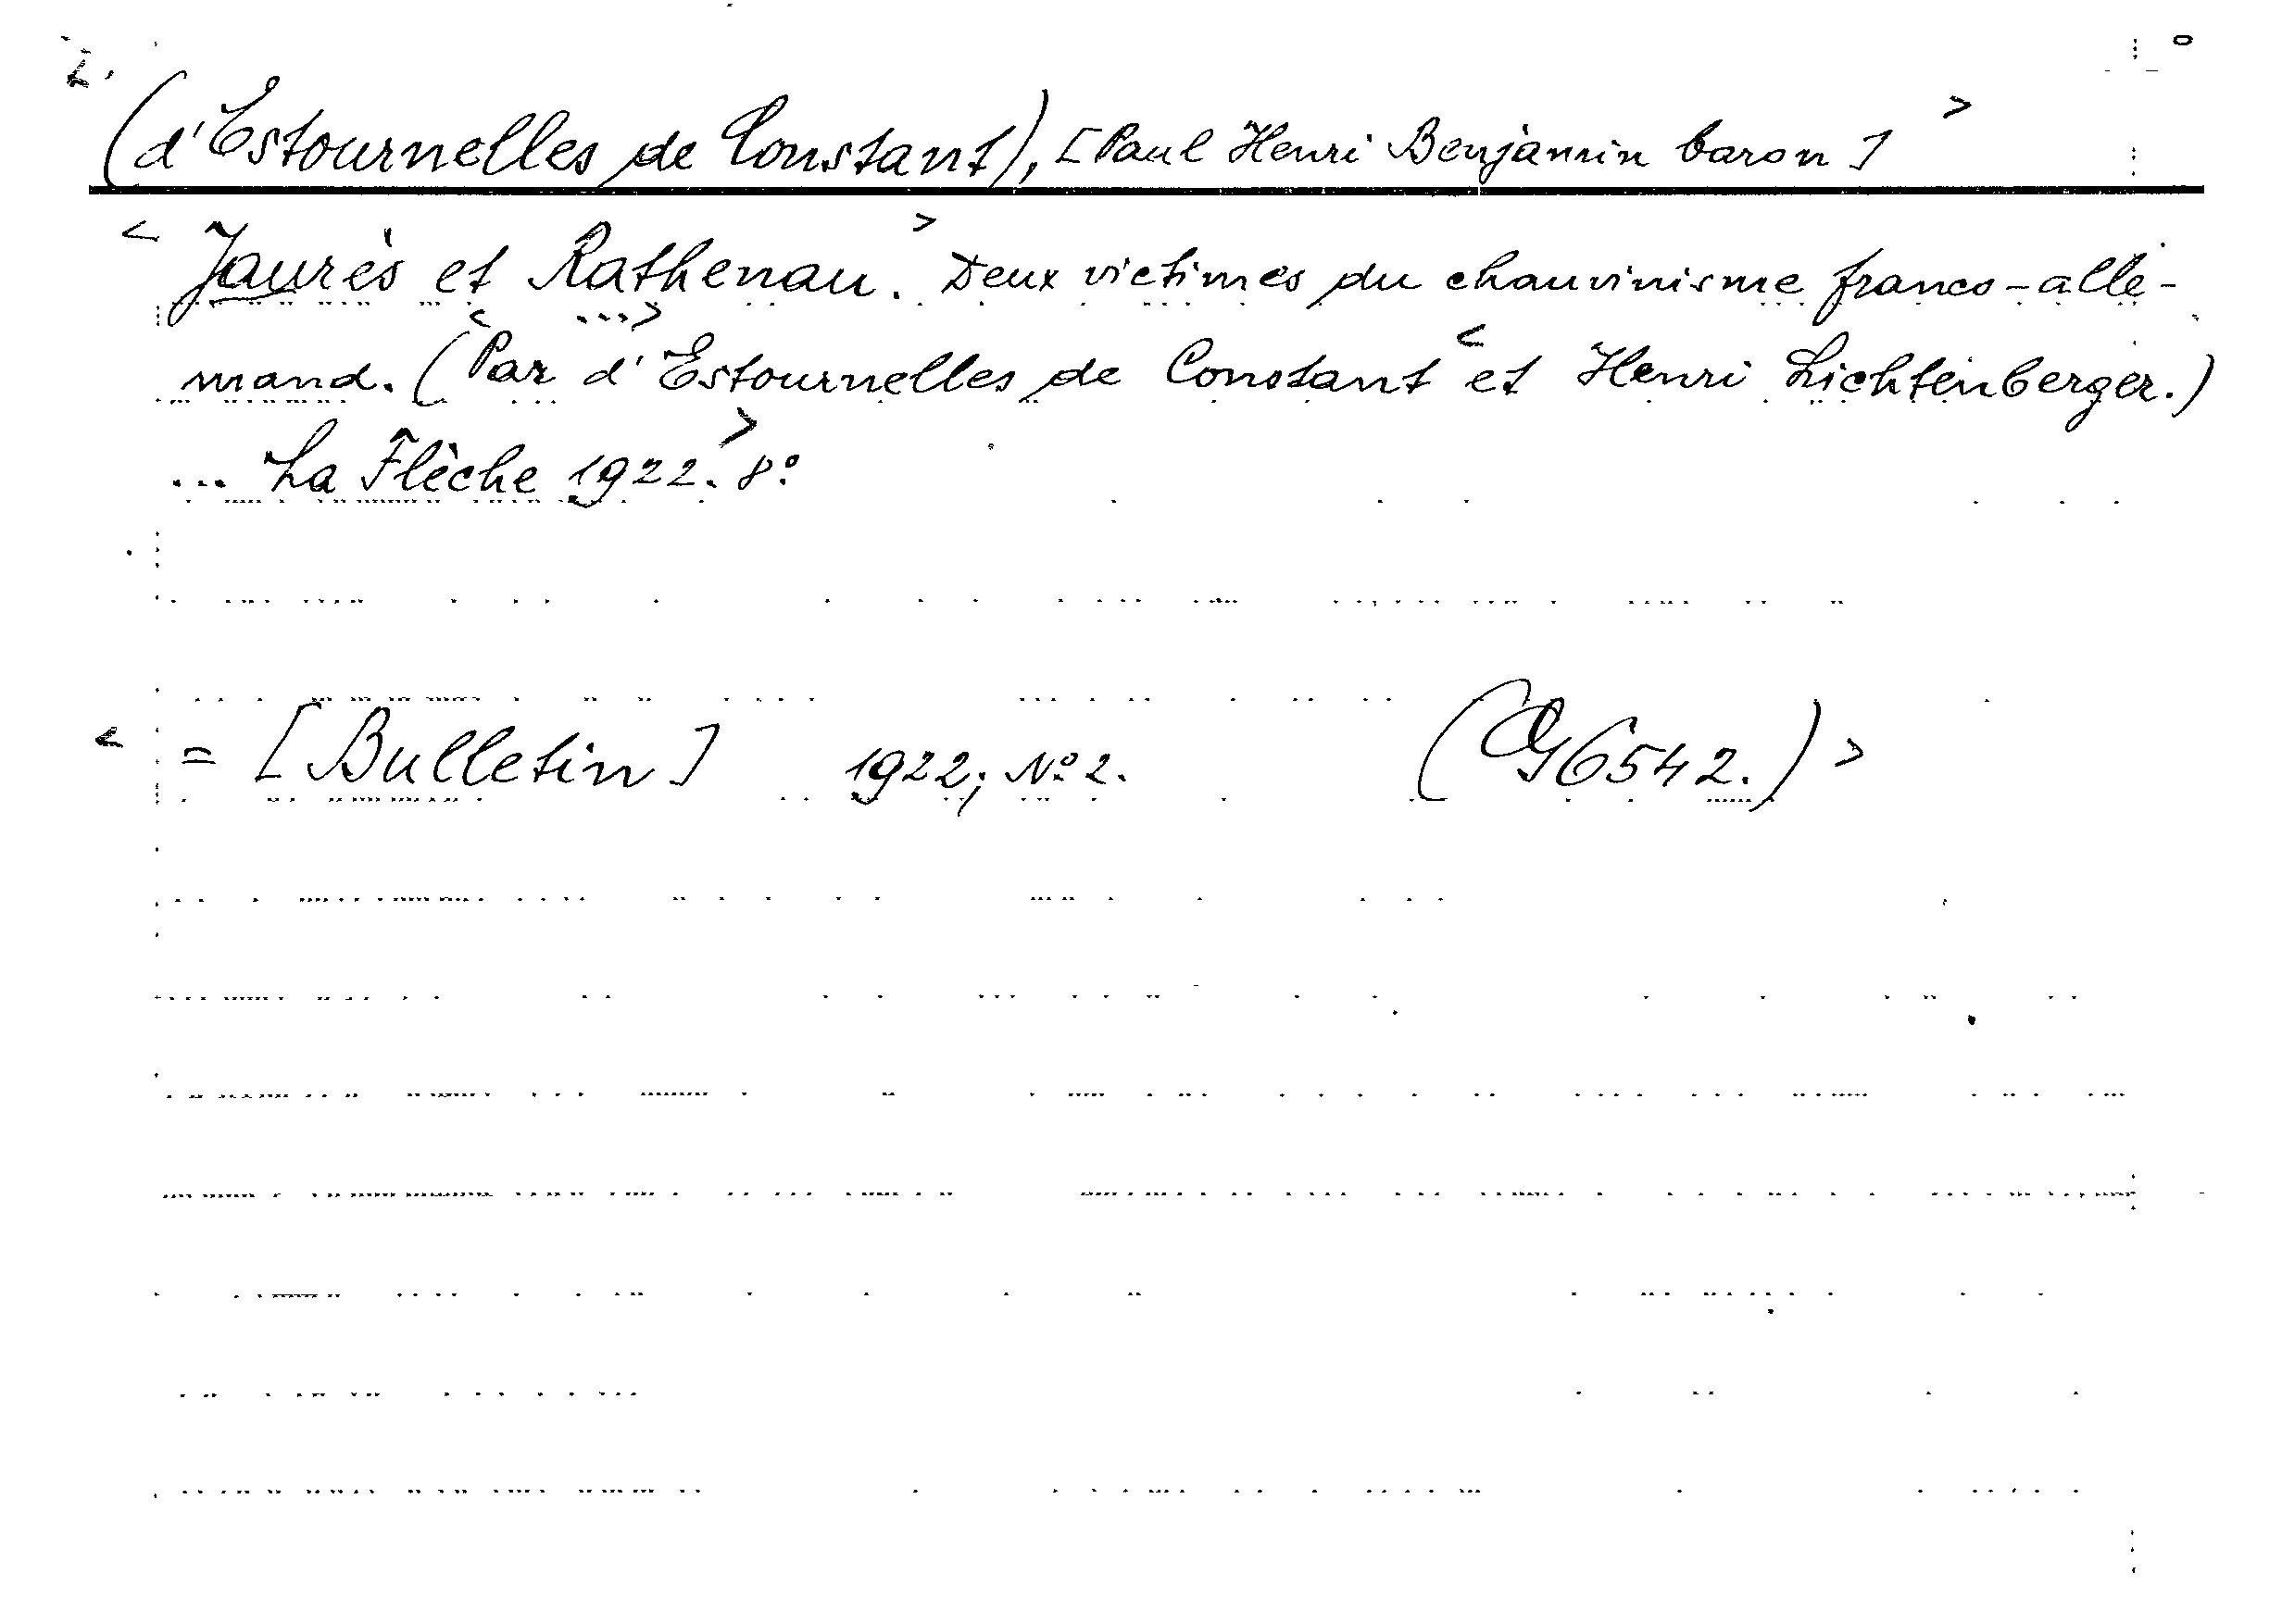 (d'Estournelles de Constant), [Paul Henri Benjamin baron] >
< Jaurès et Rathenau. > Deux victimes du chauvinisme franco-alle-
mand. (< Par ...> d'Estournelles de Constant < et Henri Lichtenberger.)
... La Flèche 1922. > 8º
< = [Bulletin] 1922; Nº 2. (OG 6542.) >